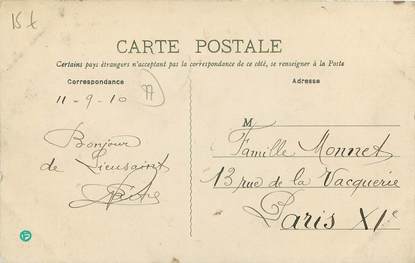 15 €
CARTE POSTALE
Certains pays étrangers n'acceptant pas la correspondance de ce côté, se renseigner à la Poste
Correspondance
11-9-10
77
Bonjour
de Lieusaint
Adresse
M
Famille Monnet
13 rue de la Vacquerie
Paris XIe